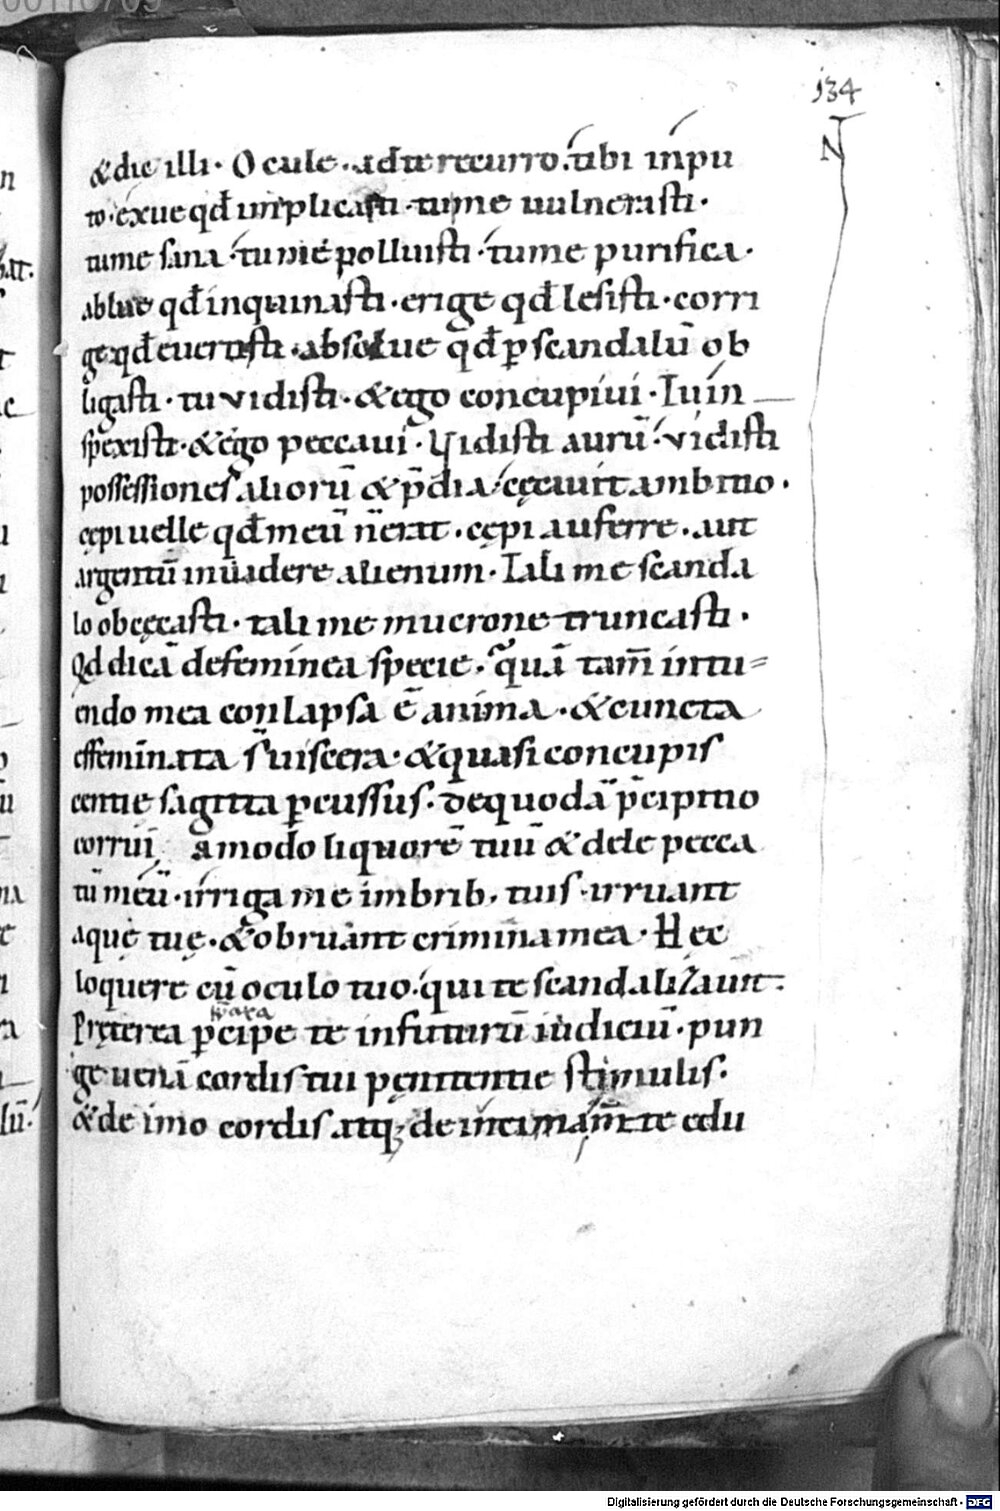 134
N
&dic illi· O cule·adte recurro·tibi inpu
to·exue qđ implicasti·tume uulnerasti·
tume sana·tumé polluisti·tume purifica·
ablue qđ inquinasti·erige qđ lesisti·corri
ge qđ euertisti·absolue qđ ꝑ scandalū ob
ligasti·tu vidisti·&ego concupiui·Tu in
spexisti·&ego peccaui·Vidisti aurū·vidisti
possessiones aliorū & p̄dia·cęcauit ambitio·
cępi uelle qđ meū n̄ erat·cępi auferre·aut
argentū inuadere alienum·Tali me scanda
lo obcęcasti·tali me mucrone truncasti·
Qd dicā defeminea specie·quā tam̄ intu=
endo mea conlapsa ē anima·&cuncta
effeminata s̄ uiscera·&quasi concupis
centie sagitta ꝑcussus·dequodā p̄cipitio
corrui amodo liquorē tuū & dele pecca
tū meū·irriga me imbrib· tuis·irruant
aquę tuę·&obruant crimina mea·Hec
loquere cū oculo tuo·qui te scandalizauit:
Pręterea p̄cipe te infuturū iudiciū·pun
ge uenā cordis tui pęnitentie stimulis·
&de imo cordis atq; de intima te edu
Digitalisierung gefördert durch die Deutsche Forschungsgemeinschaft - DFG